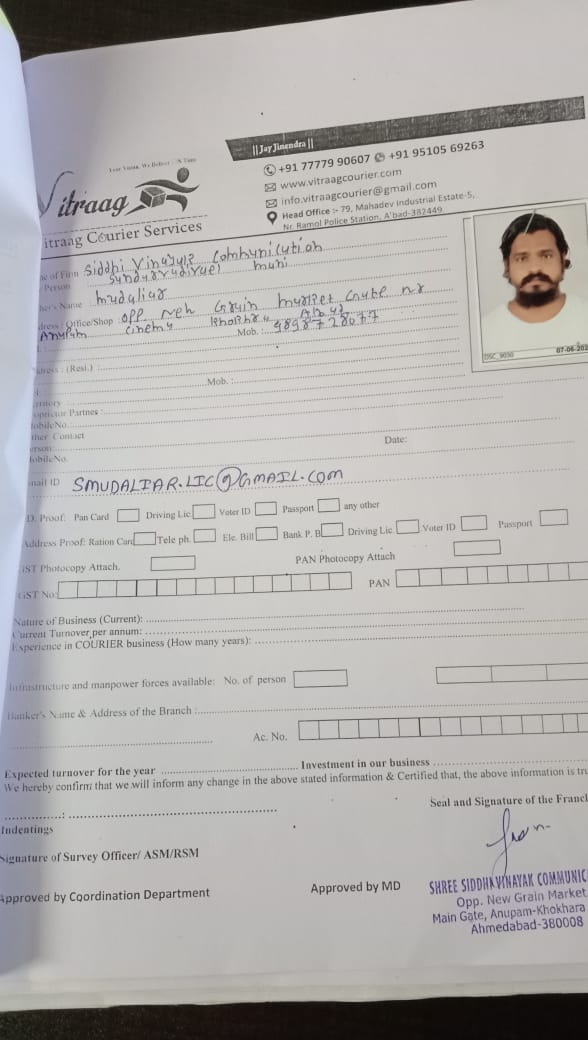 Your Vision, We Deliver On Time
|| Jay Jinendra ||
+91 77779 90607 +91 95105 69263
www.vitraagcourier.com
info.vitraagcourier@gmail.com
Head Office :- 79, Mahadev Industrial Estate-5,
Nr. Ramol Police Station, A'bad-382449.
Vitraag
itraag Courier Services
e of Firm Siddhi Vinayak
Person muni
her's Name mudaliar
dress Office/Shop opp
cinema Mob. : 9898728077
DSC_9030 07-06-202
dress : (Resi.) :
Mob. :
erritory
oprietor Partnes :
obile No.
ther Contact
erson: Date:
obile No.
mail ID SMUDALIAR.LIC@GMAIL.COM
D. Proof: Pan Card Driving Lic. Voter ID Passport any other
Address Proof: Ration Card Tele ph. Ele. Bill Bank P. B Driving Lic. Voter ID Passport
GST Photocopy Attach. PAN Photocopy Attach
GST No: PAN
Nature of Business (Current):
Current Turnover per annum:
Experience in COURIER business (How many years):
Infrastructure and manpower forces available: No. of person
Banker's Name & Address of the Branch :
Ac. No.
Expected turnover for the year Investment in our business
We hereby confirm that we will inform any change in the above stated information & Certified that, the above information is tru
Seal and Signature of the Franc
Indentings
Signature of Survey Officer/ ASM/RSM
Approved by Coordination Department Approved by MD
SHREE SIDDHI VINAYAK COMMUNIC
Opp. New Grain Market
Main Gate, Anupam-Khokhara
Ahmedabad-380008